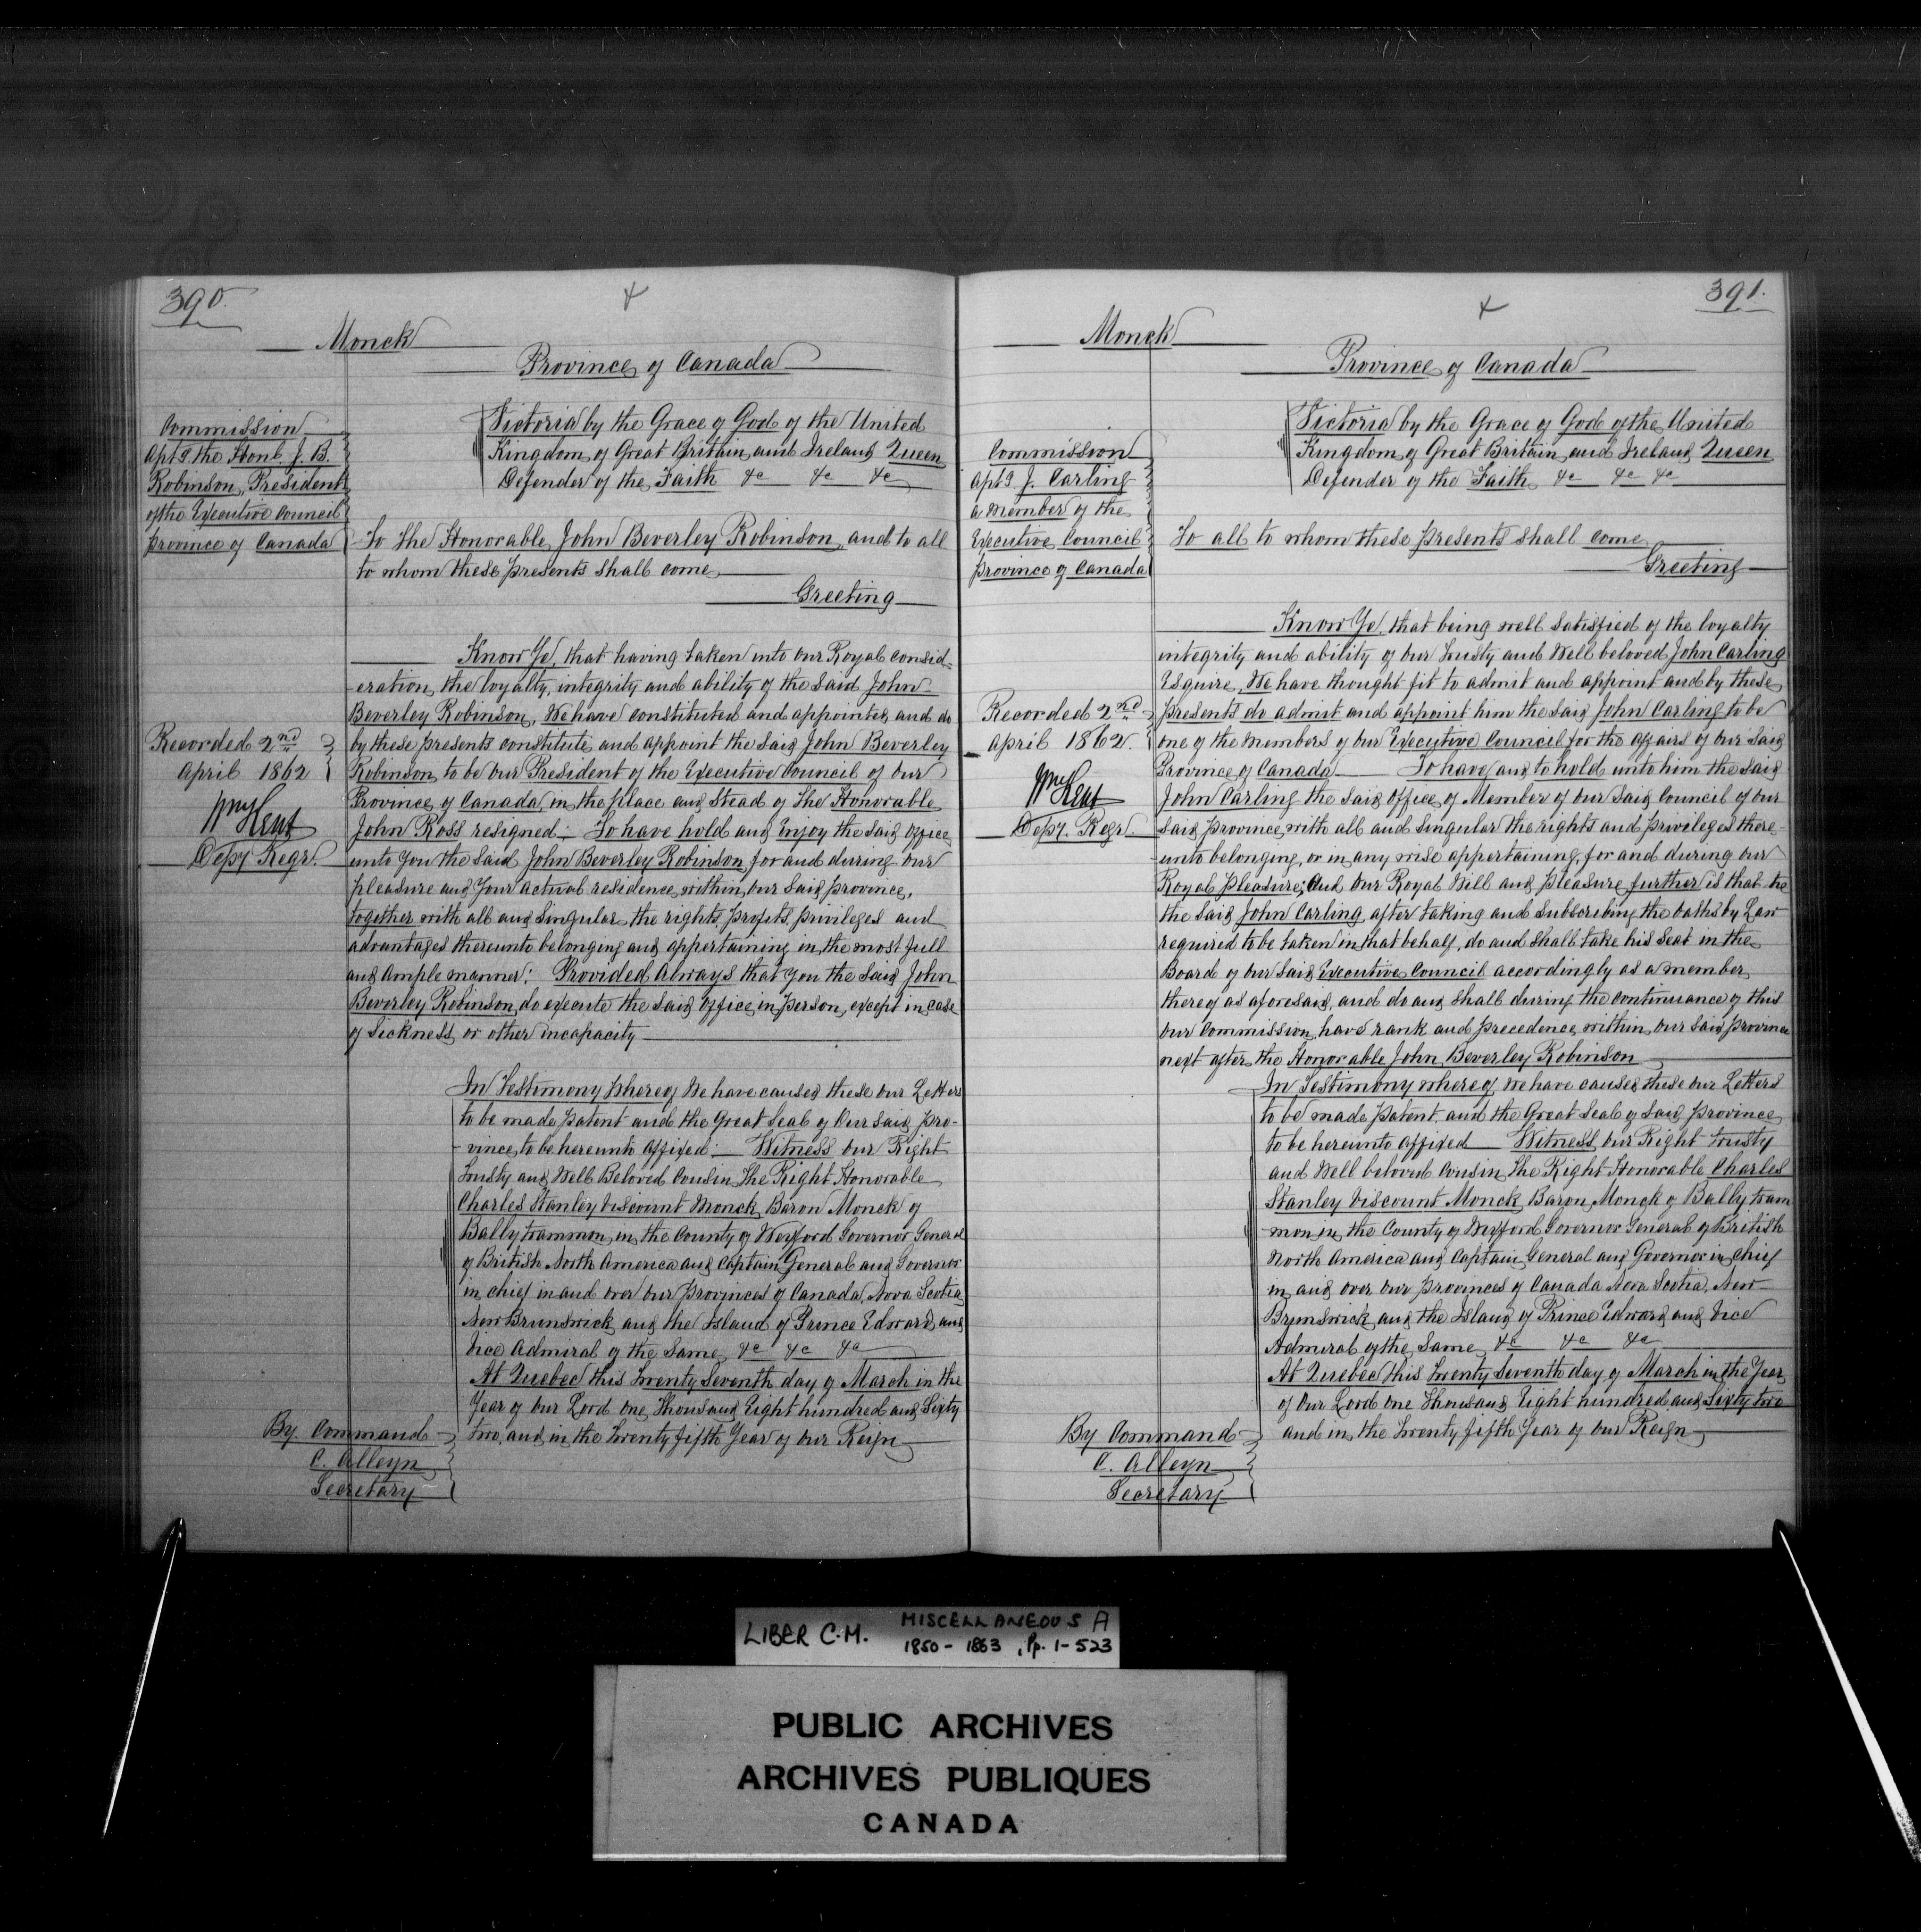 390.
Monck
Province of Canada
Commission
Aptg the Honl J. B.
Robinson, President
of the Executive Council
Province of Canada
Victoria by the Grace of God of the United
Kingdom of Great Britain and Ireland Queen
Defender of the Faith &c &c &c
To The Honorable John Beverley Robinson, and to all
to whom these presents shall come
Greeting
Know Ye, that having taken into our Royal consid-
-eration the loyalty, integrity and ability of the said John
Beverley Robinson, We have constituted and appointed, and do
by these presents constitute and appoint the said John Beverley
Robinson to be our President of the Executive Council of our
Province of Canada, in the place and stead of The Honorable
John Ross resigned; To have hold and Enjoy the said office
unto you the said John Beverley Robinson for and during our
pleasure and your actual residence within our said province,
together with all and singular the rights, profits, privileges and
advantages thereunto belonging and appertaining in the most full
and ample manner: Provided Always that you the said John
Beverley Robinson do execute the said Office in person, except in case
of Sickness or other incapacity
Recorded 2nd
April 1862
Wm Kent
Depy Regr.
In Testimony Whereof We have caused these our Letters
to be made Patent and the Great Seal of Our said Pro-
-vince to be hereunto affixed: Witness our Right
Trusty and Well Beloved Cousin The Right Honorable
Charles Stanley Viscount Monck, Baron Monck of
Ballytrammon in the County of Wexford Governor General
of British North America and Captain General and Governor
in Chief in and over our Provinces of Canada, Nova Scotia
New Brunswick and the Island of Prince Edward, and
Vice Admiral of the Same &c &c &c
At Quebec this Twenty Seventh day of March in the
Year of our Lord one Thousand Eight hundred and Sixty
two, and in the Twenty fifth Year of our Reign
By Command
C. Alleyn
Secretary
391.
Monck
Province of Canada
Commission
Aptg J. Carling
a Member of the
Executive Council
Province of Canada
Victoria by the Grace of God of the United
Kingdom of Great Britain and Ireland Queen
Defender of the Faith &c &c &c
To all to whom these Presents shall come
Greeting
Know Ye, that being well satisfied of the loyalty
integrity and ability of our trusty and Well beloved John Carling
Esquire, We have thought fit to admit and appoint and by these
presents do admit and appoint him the said John Carling to be
one of the Members of our Executive Council for the affairs of our said
Province of Canada To have and to hold unto him the said
John Carling the said office of Member of our said Council of our
said Province, with all and singular the rights and privileges there-
-unto belonging, or in any wise appertaining, for and during our
Royal Pleasure; And Our Royal Will and pleasure further is that he
the said John Carling, after taking and subscribing the oaths by Law
required to be taken in that behalf, do and shall take his seat in the
Board of our said Executive Council accordingly as a member
thereof as aforesaid, and do and shall during the continuance of this
our Commission, have rank and precedence within our said province
next after the Honorable John Beverley Robinson
Recorded 2nd
April 1862.
Wm Kent
Depy. Regr.
In Testimony whereof, We have caused these our Letters
to be made Patent, and the Great Seal of said Province
to be hereunto affixed Witness, our Right trusty
and Well beloved Cousin The Right Honorable Charles
Stanley Viscount Monck, Baron Monck of Ballytram
-mon in the County of Wexford Governor General of British
North America and Captain General and Governor in Chief
in and over our Provinces of Canada Nova Scotia, New
Brunswick and the Island of Prince Edward and Vice
Admiral of the Same &c &c &c
At Quebec this Twenty Seventh day of March in the Year
of our Lord one Thousand Eight hundred and Sixty two
and in the Twenty fifth Year of our Reign
By Command
C. Alleyn
Secretary
LIBER C.M. MISCELLANEOUS A
1850-1863, Pp. 1-523
PUBLIC ARCHIVES
ARCHIVES PUBLIQUES
CANADA